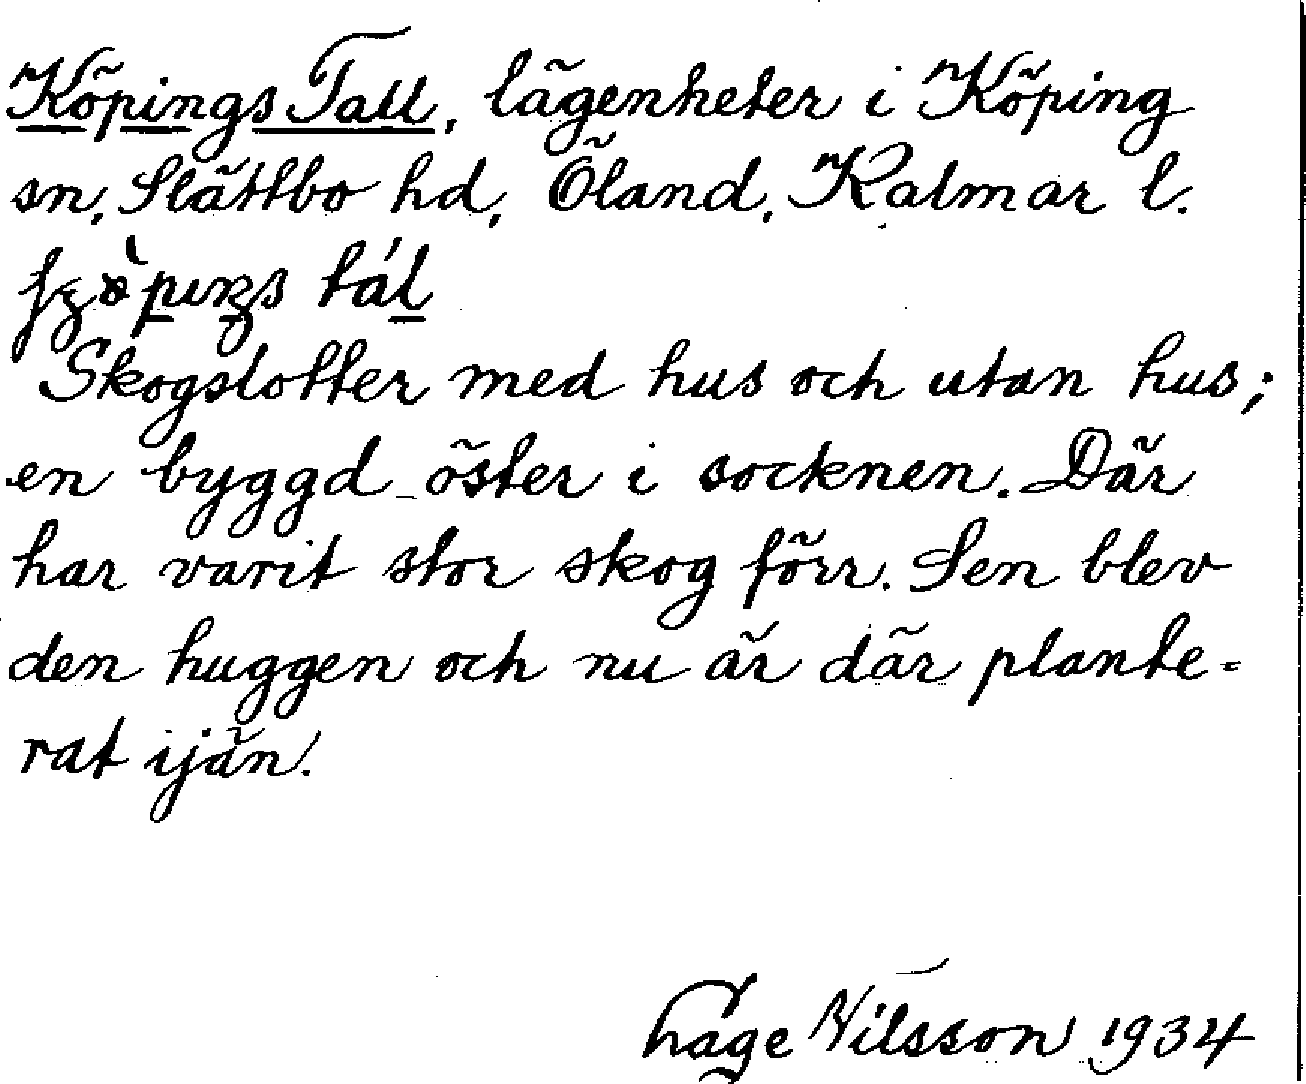 Köpings Tall, lägenheter i Köping
sn, Slättbo hd, Öland, Kalmar l.
tál
Skogslotter med hus och utan hus;
en byggd öster i socknen. Där
har varit stor skog förr. Sen blev
den huggen och nu är där plante=
rat ijän.
Åage Nilsson 1934